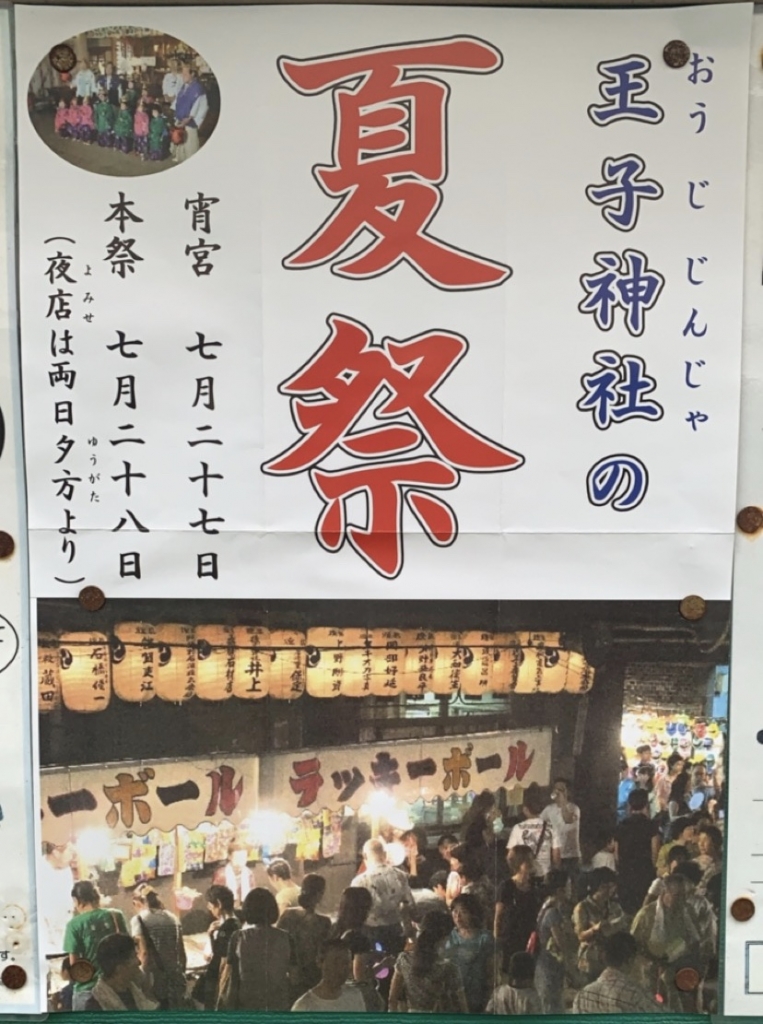 おうじじんじゃ
王子神社の
夏祭
宵宮 七月二十七日
本祭 七月二十八日
よみせ ゆうがた
(夜店は両日夕方より)
井上
ーボール
ラッキーボール